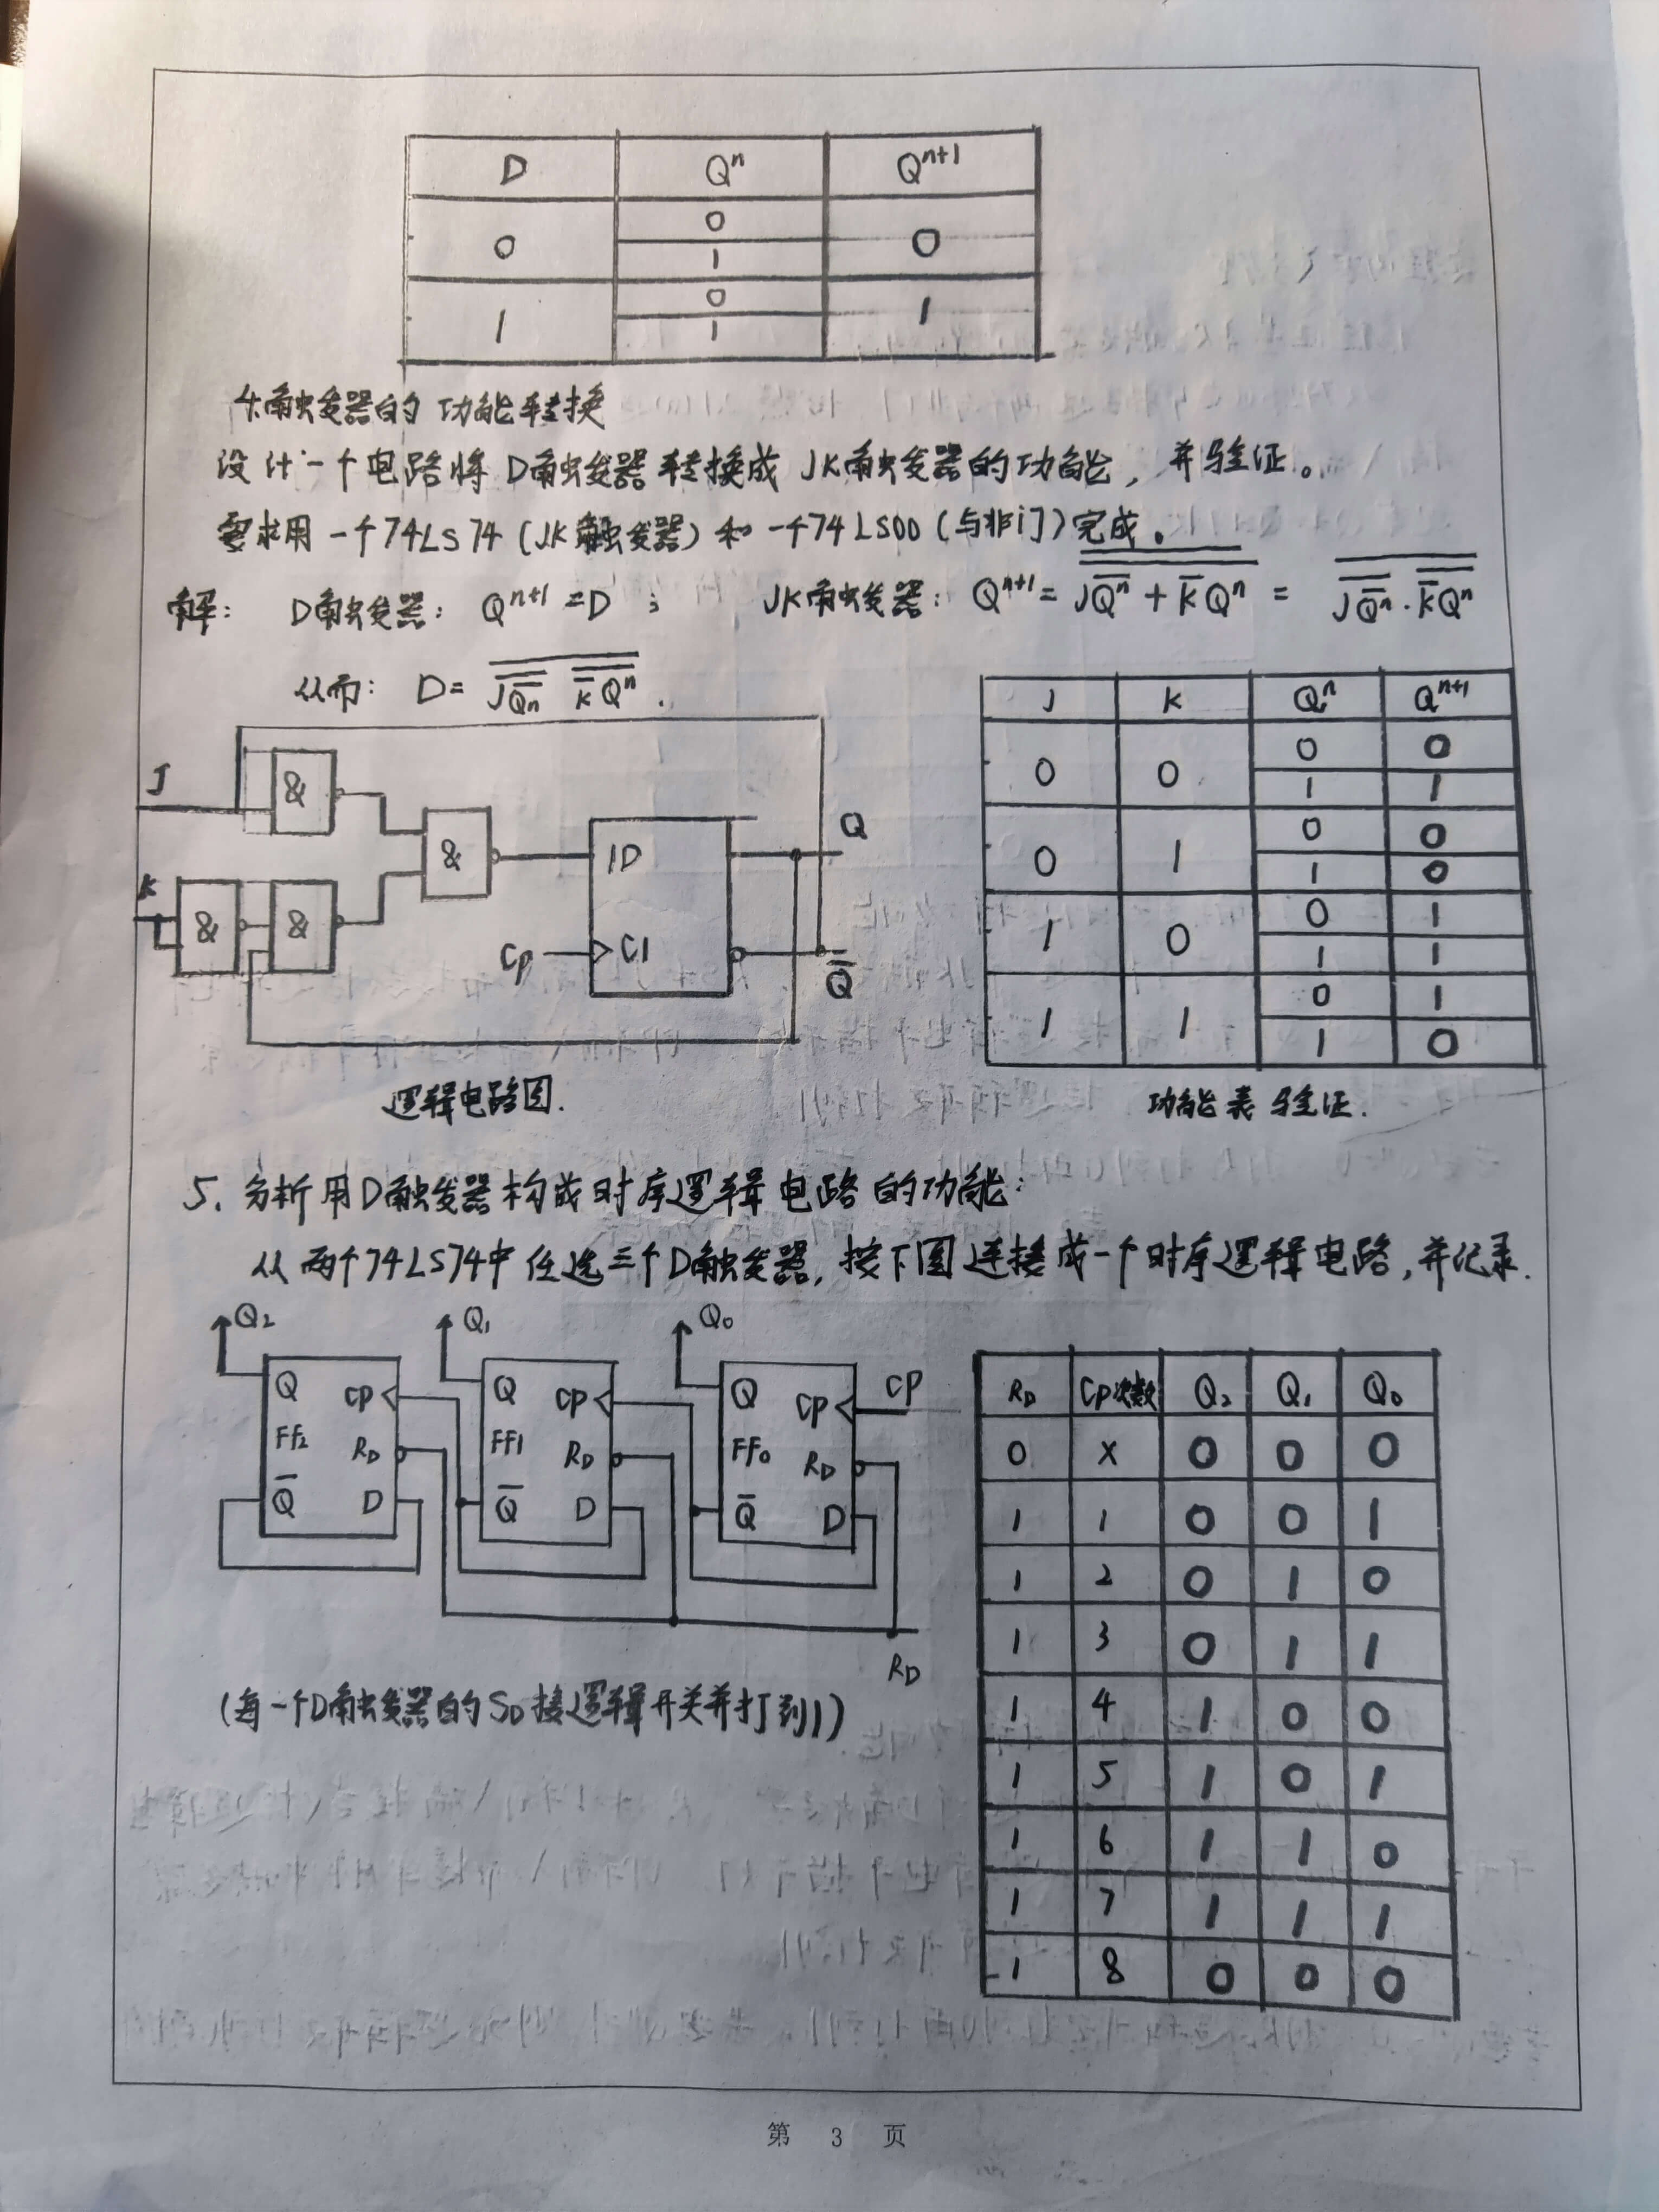 D Qⁿ Qⁿ⁺¹
0 0 0
1
1 0 1
1
4.触发器的功能转换
设计一个电路将D触发器转换成JK触发器的功能，并验证。
要求用一个74LS74(JK触发器)和一个74LS00(与非门)完成。
解： D触发器：Qⁿ⁺¹=D； JK触发器：Qⁿ⁺¹= $\overline{\overline{J\overline{Q^n}+\overline{K}Q^n}}$ = $\overline{\overline{J\overline{Q^n}}\cdot\overline{\overline{K}Q^n}}$
从而：D= $\overline{\overline{J\overline{Q_n}}\ \overline{\overline{K}Q^n}}$.
J & & 1D Q
K & & CP C1 Q̅
逻辑电路图.
J K Qⁿ Qⁿ⁺¹
0 0 0 0
1 1
0 1 0 0
1 0
1 0 0 1
1 1
1 1 0 1
1 0
功能表验证.
5. 分析用D触发器构成时序逻辑电路的功能：
从两个74LS74中任选三个D触发器,按下图连接成一个时序逻辑电路,并记录.
Q₂ Q₁ Q₀
Q CP Q CP Q CP CP
FF₂ R_D FF1 R_D FF₀ R_D
Q̅ D Q̅ D Q̅ D
R_D
(每一个D触发器的S_D接逻辑开关并打到1)
R_D CP次数 Q₂ Q₁ Q₀
0 × 0 0 0
1 1 0 0 1
1 2 0 1 0
1 3 0 1 1
1 4 1 0 0
1 5 1 0 1
1 6 1 1 0
1 7 1 1 1
1 8 0 0 0
第 3 页